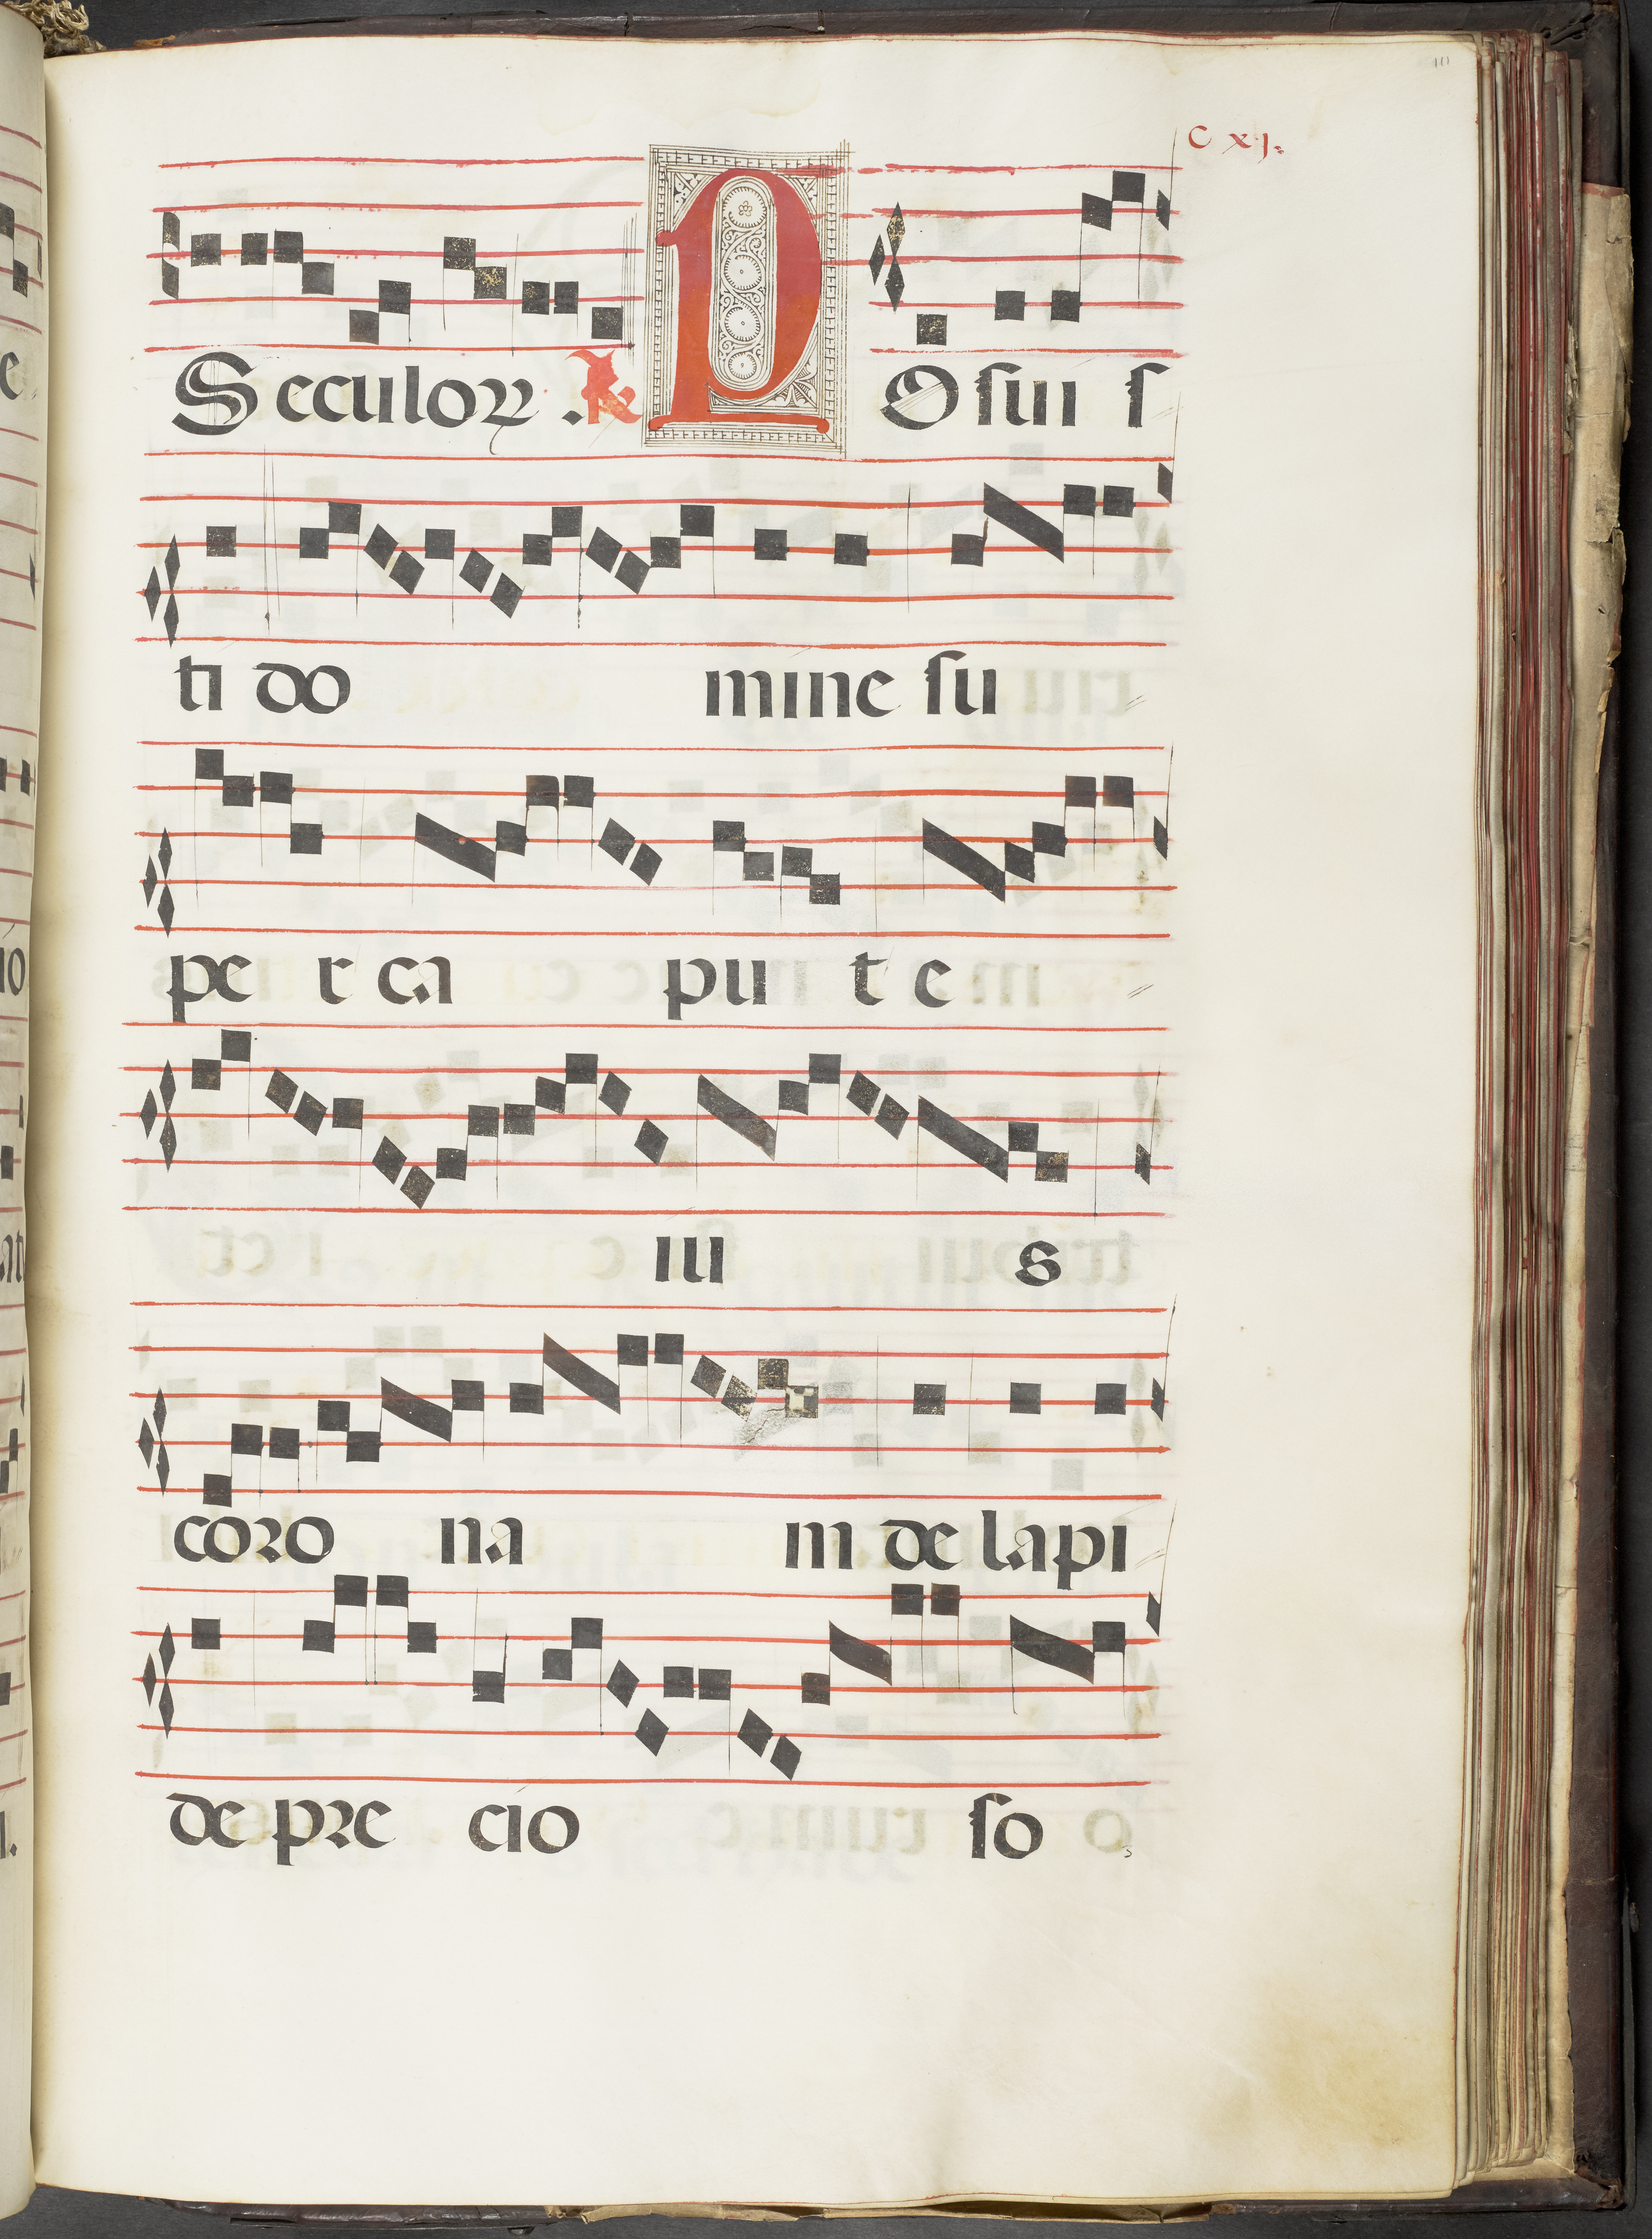 C xj.
Seculoꝝ. ℟ POſui ſ
ti do mine ſu
pe r ca pu t e
iu s
coꝛo na m de lapi
de pꝛe cio ſo